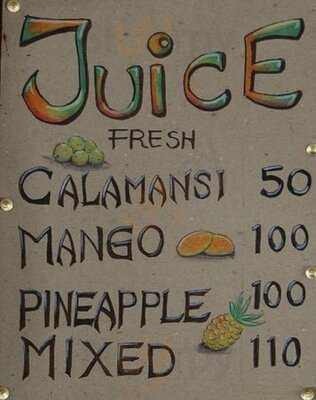 JUiCE
FRESH
CALAMANSI 50
MANGO 100
PINEAPPLE 100
MIXED 110